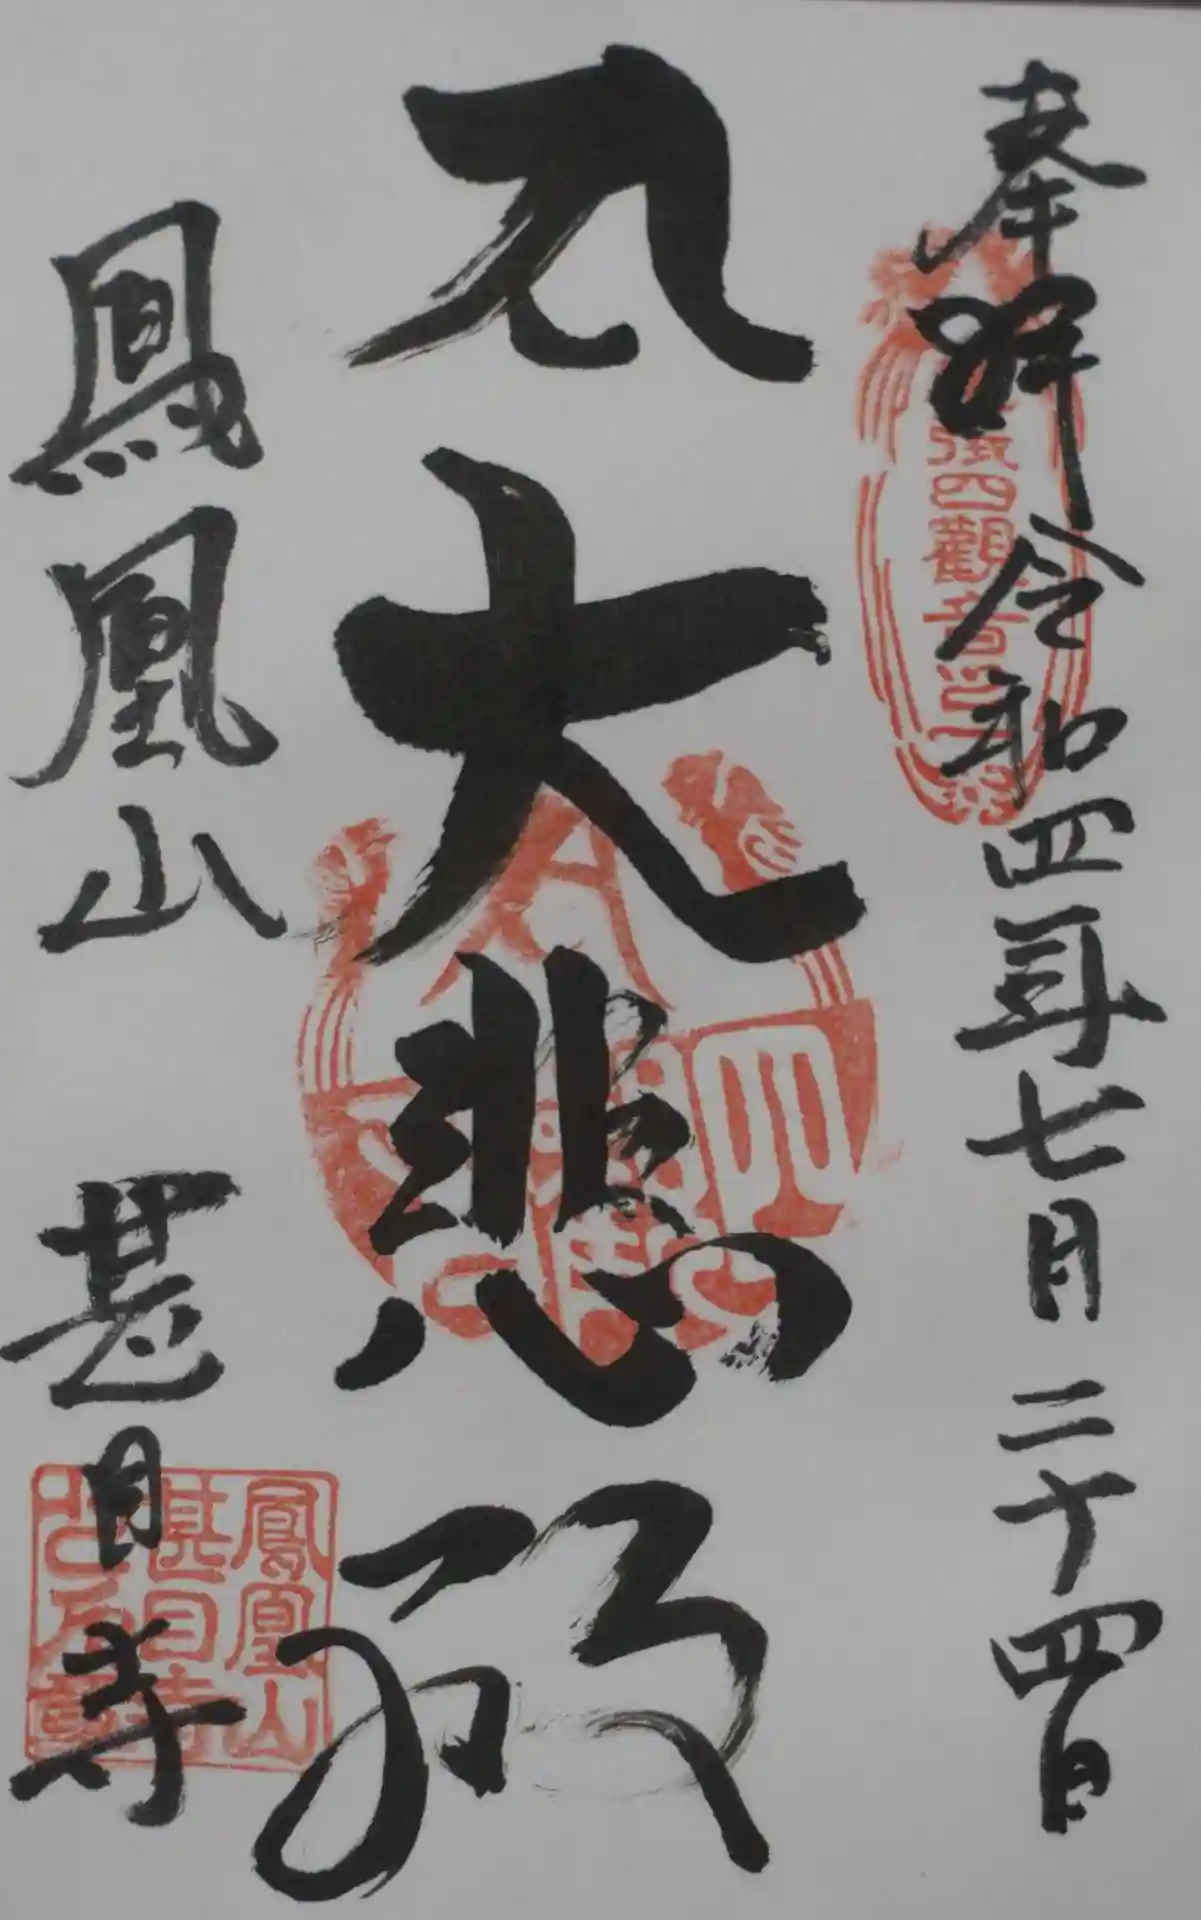 奉拝 令和四年七月二十四日
大悲殿
鳳凰山 甚目寺
四観音
鳳凰山
甚目寺